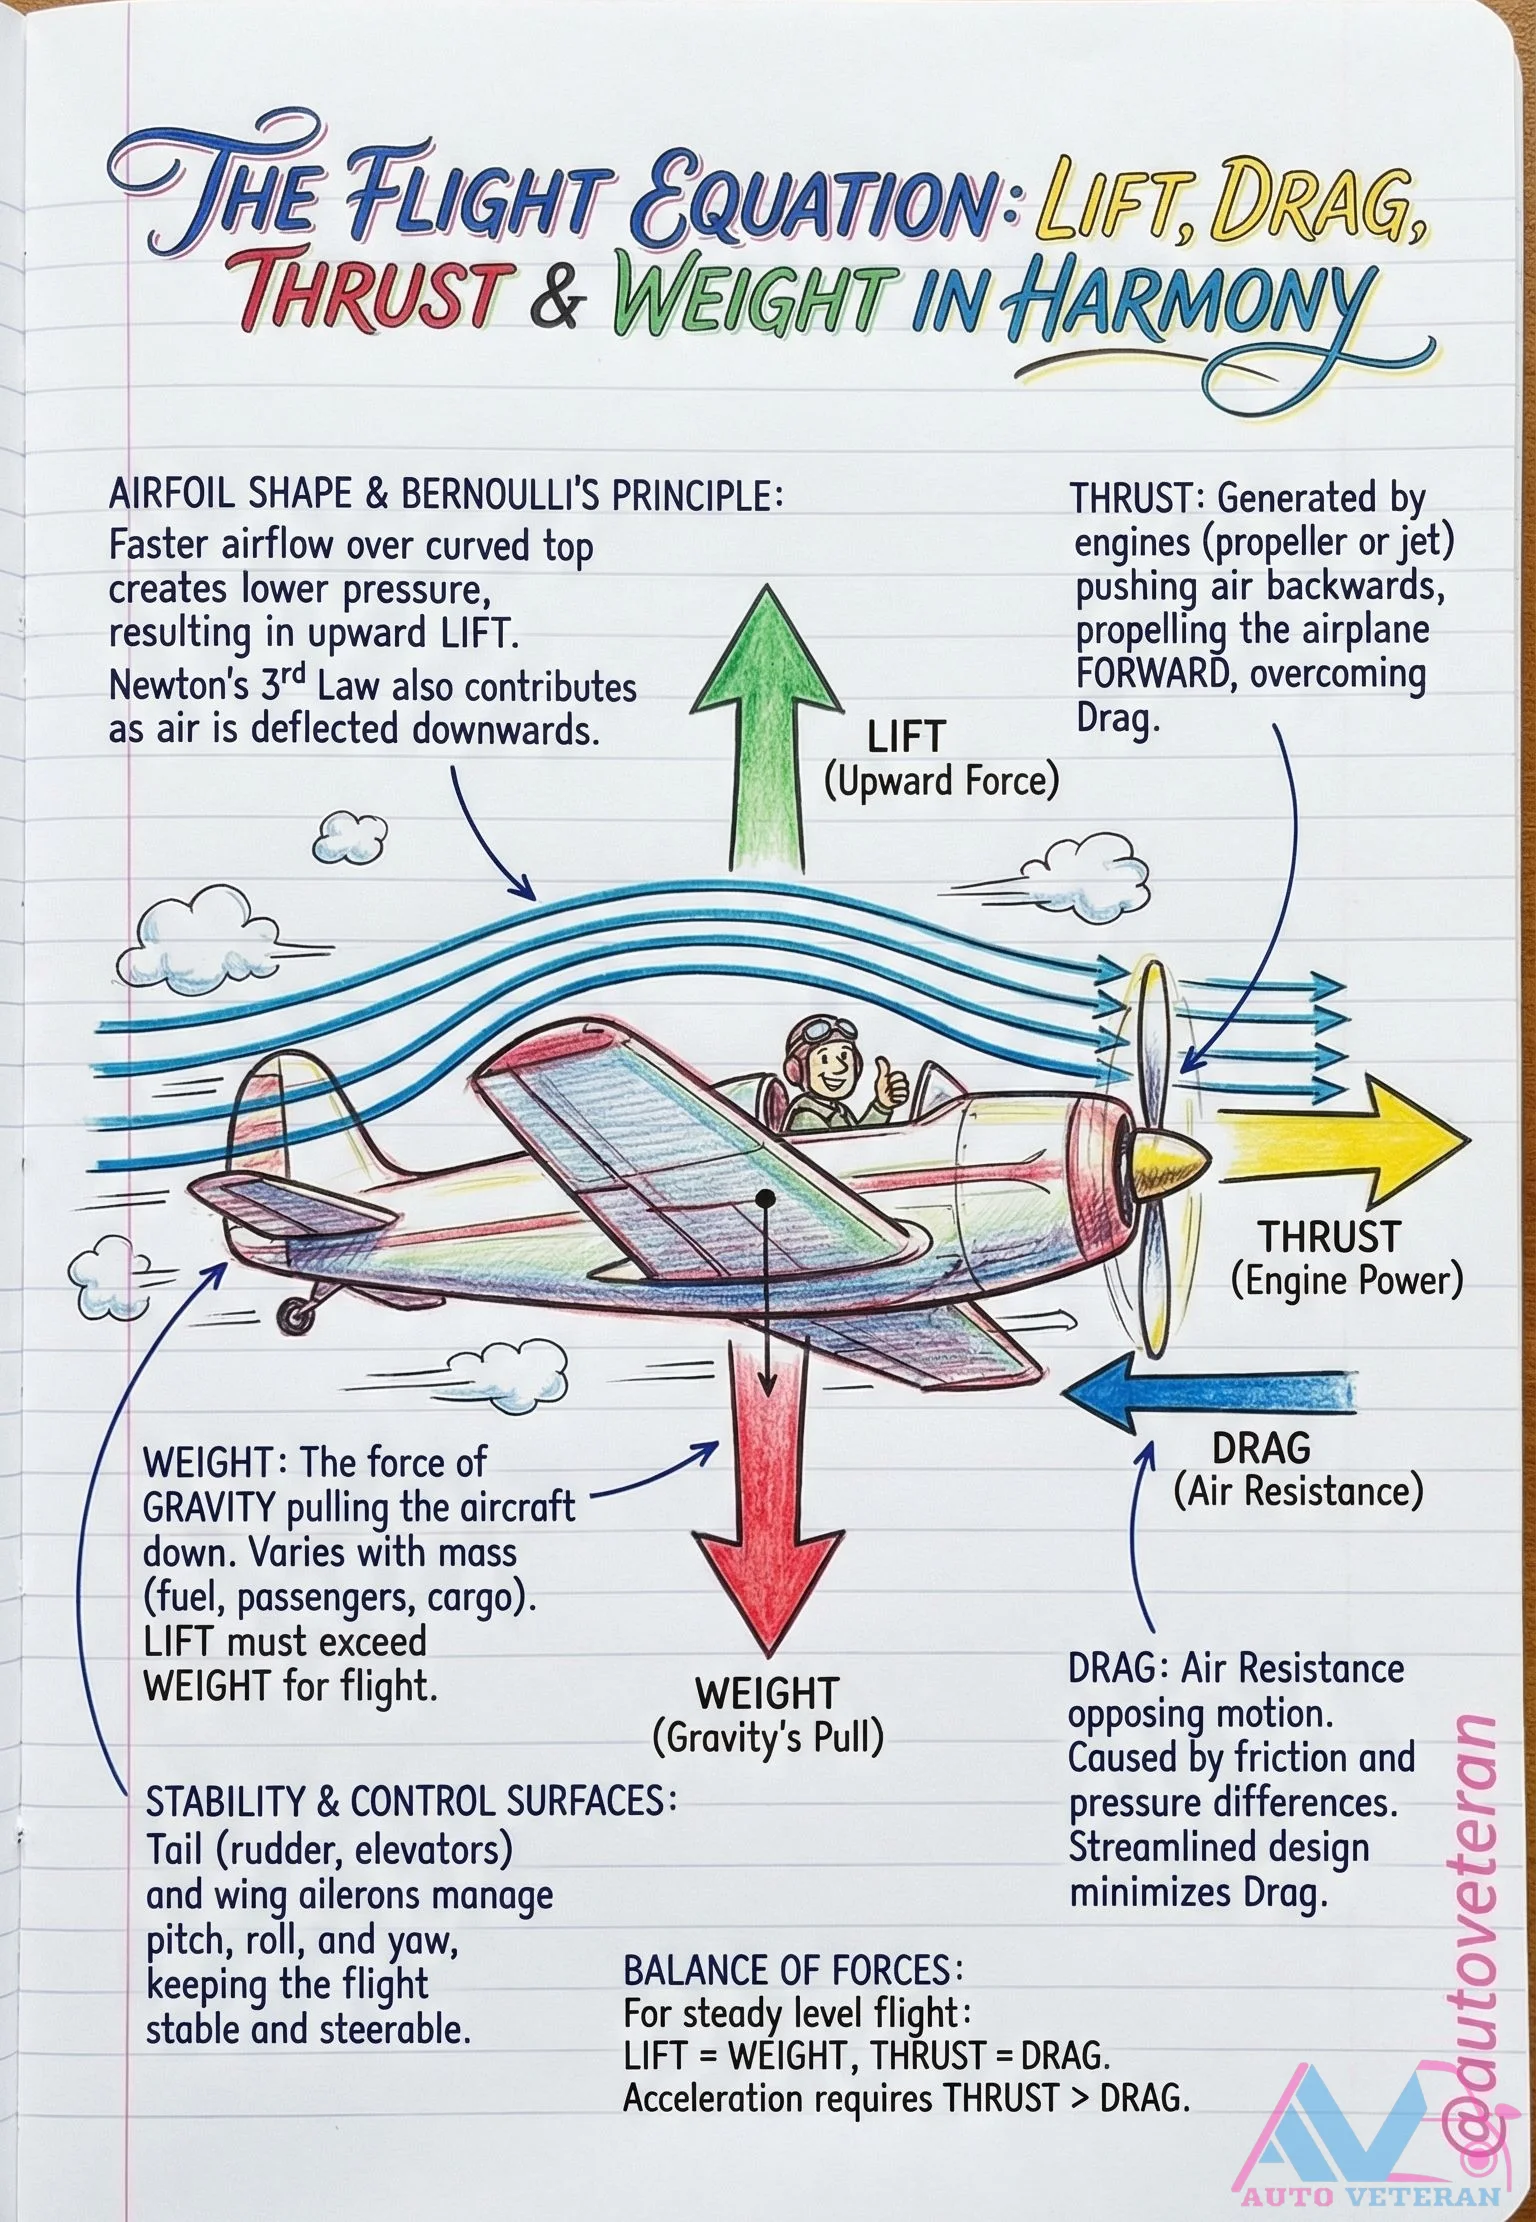 THE FLIGHT EQUATION: LIFT, DRAG,
THRUST & WEIGHT IN HARMONY
AIRFOIL SHAPE & BERNOULLI'S PRINCIPLE:
Faster airflow over curved top
creates lower pressure,
resulting in upward LIFT.
Newton's 3rd Law also contributes
as air is deflected downwards.
THRUST: Generated by
engines (propeller or jet)
pushing air backwards,
propelling the airplane
FORWARD, overcoming
Drag.
LIFT
(Upward Force)
THRUST
(Engine Power)
DRAG
(Air Resistance)
WEIGHT: The force of
GRAVITY pulling the aircraft
down. Varies with mass
(fuel, passengers, cargo).
LIFT must exceed
WEIGHT for flight.
WEIGHT
(Gravity's Pull)
DRAG: Air Resistance
opposing motion.
Caused by friction and
pressure differences.
Streamlined design
minimizes Drag.
STABILITY & CONTROL SURFACES:
Tail (rudder, elevators)
and wing ailerons manage
pitch, roll, and yaw,
keeping the flight
stable and steerable.
BALANCE OF FORCES:
For steady level flight:
LIFT = WEIGHT, THRUST = DRAG.
Acceleration requires THRUST > DRAG.
@autoveteran
AV
AUTO VETERAN